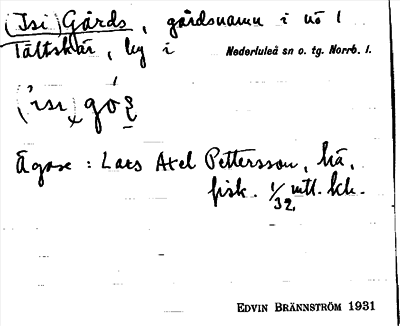 (Isi)Gårds, gårdsnamn i nö 1
Tältskär, by i Nederluleå sn o. tg. Norrb. l.
Ägare: Lars Axel Pettersson, hä,
fisk. 1/32 mtl. kh.
EDVIN BRÄNNSTRÖM 1931